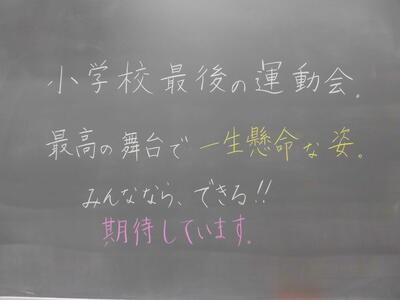 小学校最後の運動会。
最高の舞台で一生懸命な姿。
みんななら、できる!!
期待しています。